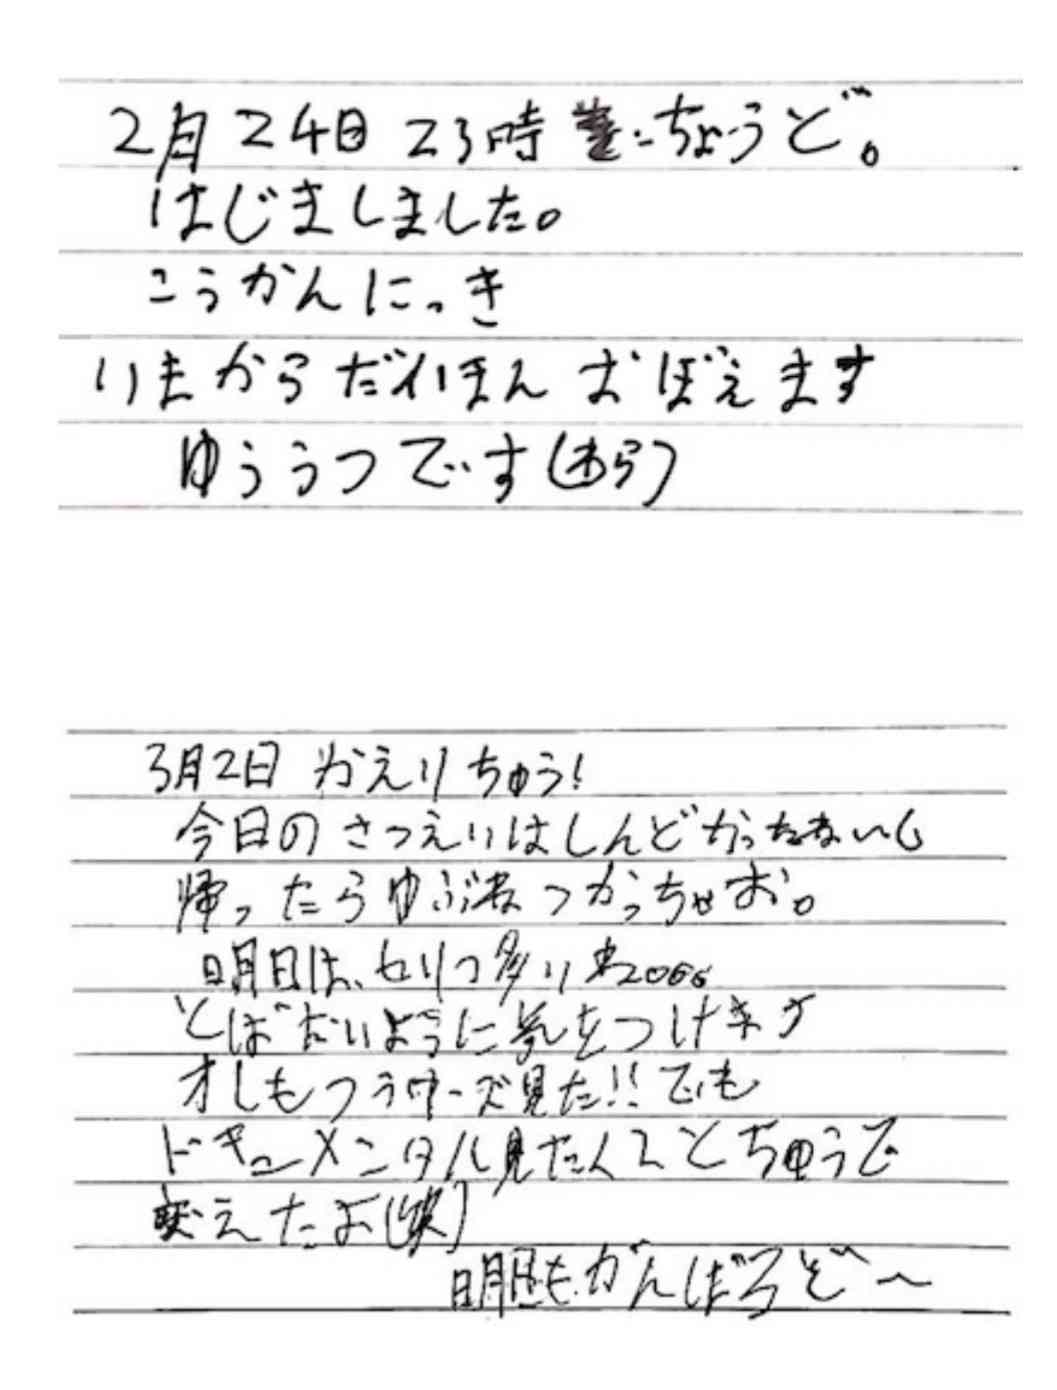 2月24日 23時 ちょうど。
はじましました。
こうかんにっき
いまからだいほん おぼえます
ゆううつです(わら)
3月2日 かえりちゅう!
今日のさつえいはしんどかったない〜
帰ったらゆぶねつかっちゃお。
明日は、セリフ多い
とばないように気をつけます
オレもフラワーズ見た!!でも
ドキュメンタル見たくてとちゅうで
変えたよ(笑)
明日もがんばろぞ〜